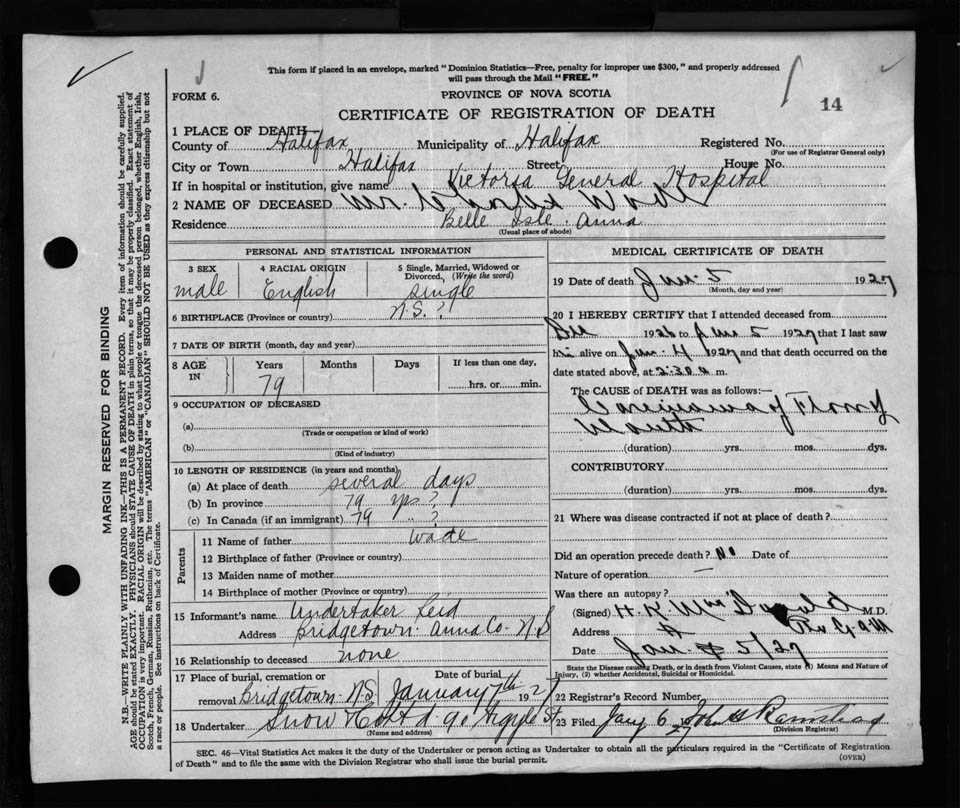 This form if placed in an envelope, marked "Dominion Statistics—Free, penalty for improper use $300," and properly addressed
will pass through the Mail "FREE."
FORM 6.
PROVINCE OF NOVA SCOTIA
14
CERTIFICATE OF REGISTRATION OF DEATH
1 PLACE OF DEATH—
County of Halifax Municipality of Halifax Registered No.
(For use of Registrar General only)
City or Town Halifax Street House No.
If in hospital or institution, give name Victoria General Hospital
2 NAME OF DECEASED Mr.
Residence Belle Isle. Anna
(Usual place of abode)
PERSONAL AND STATISTICAL INFORMATION
3 SEX 4 RACIAL ORIGIN 5 Single, Married, Widowed or
Divorced, (Write the word)
male English single
6 BIRTHPLACE (Province or country) N.S. ?
7 DATE OF BIRTH (month, day and year)
8 AGE IN Years Months Days If less than one day,
79 hrs. or min.
9 OCCUPATION OF DECEASED
(a)
(Trade or occupation or kind of work)
(b)
(Kind of industry)
10 LENGTH OF RESIDENCE (in years and months)
(a) At place of death several days
(b) In province 79 yrs ?
(c) In Canada (if an immigrant) 79 " ?
Parents
11 Name of father Wade
12 Birthplace of father (Province or country)
13 Maiden name of mother
14 Birthplace of mother (Province or country)
15 Informant's name Undertaker Reid
Address Bridgetown. Anna Co. N.S
16 Relationship to deceased none
17 Place of burial, cremation or removal Date of burial
Bridgetown. N.S. January 7th 1927
18 Undertaker Snow & Co Ltd. 90 Argyle St
(Name and address)
MEDICAL CERTIFICATE OF DEATH
19 Date of death Jan. 5 1927
(Month, day and year)
20 I HEREBY CERTIFY that I attended deceased from
Dec 1926 to Jan 5 1927 that I last saw
him alive on Jan. 4 1927 and that death occurred on the
date stated above, at 2.30 a m.
The CAUSE OF DEATH was as follows:—
Carcinoma of Floor of
Mouth
(duration) yrs. mos. dys.
CONTRIBUTORY
(duration) yrs. mos. dys.
21 Where was disease contracted if not at place of death?
Did an operation precede death? No Date of
Nature of operation —
Was there an autopsy?
(Signed) H. K. McDonald M.D.
Address
Date Jan. 5/27
State the Disease causing Death, or in death from Violent Causes, state (1) Means and Nature of
Injury, (2) whether Accidental, Suicidal or Homicidal.
22 Registrar's Record Number
23 Filed Jany 6 27 John
(Division Registrar)
SEC. 46—Vital Statistics Act makes it the duty of the Undertaker or person acting as Undertaker to obtain all the particulars required in the "Certificate of Registration
of Death" and to file the same with the Division Registrar who shall issue the burial permit.
(OVER)
MARGIN RESERVED FOR BINDING
N.B.—WRITE PLAINLY WITH UNFADING INK—THIS IS A PERMANENT RECORD. Every item of information should be carefully supplied.
AGE should be stated EXACTLY. PHYSICIANS should STATE CAUSE OF DEATH in plain terms, so that it may be properly classified. Exact statement of
OCCUPATION is very important. RACIAL ORIGIN will be described by stating to what people or tongue the deceased person belonged, whether English, Irish,
Scotch, French, German, Russian, Ruthenian, etc. The terms "AMERICAN" or "CANADIAN" SHOULD NOT BE USED as they express citizenship but not
a race or people. See instructions on back of Certificate.